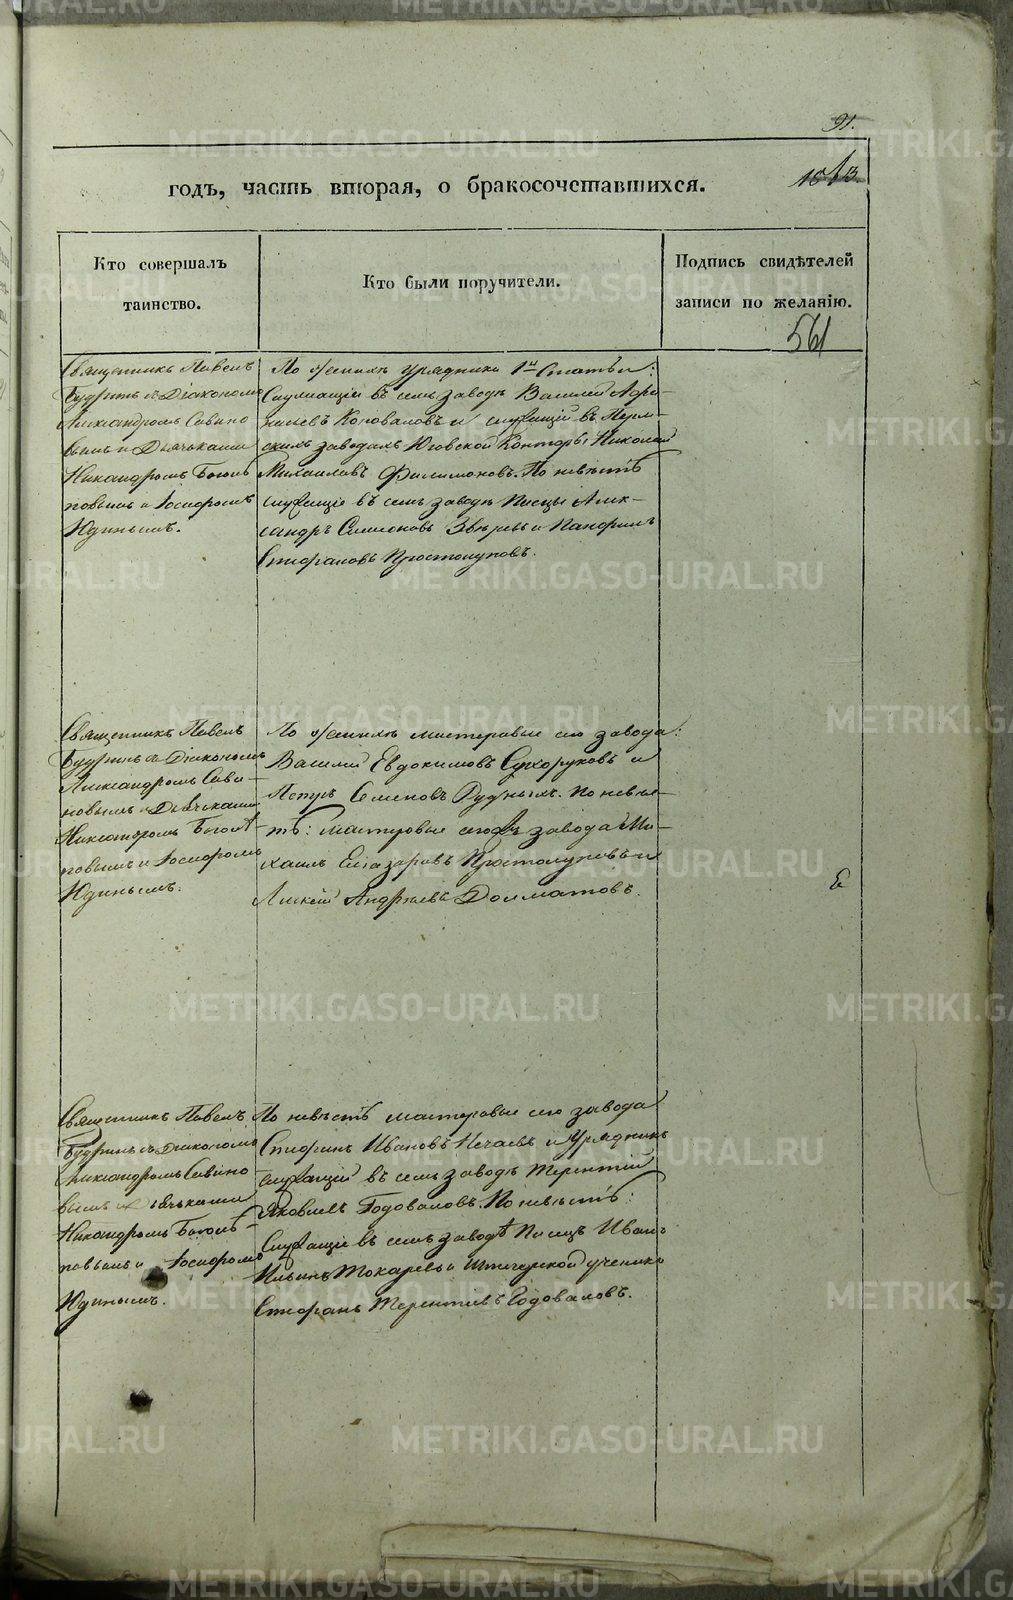 91.
годъ, часть вторая, о бракосочетавшихся.
Кто совершалъ
таинство.
Кто были поручители.
Подпись свидѣтелей
записи по желанію.
561
Священникъ Павелъ
Будринъ съ Діакономъ
Александромъ Савино
вымъ и Дьячьками
Никандромъ Боголѣ
повымъ и Іосифомъ
Юдинымъ.
По женихѣ урядники 1й Статьи:
Служащіе въ семъ заводѣ Василій Афо-
насьевъ Коноваловъ и служащій въ Перм-
скихъ заводахъ Юговской Конторы Николай
Михаиловъ Филимоновъ. По невѣстѣ
служащіе въ семъ заводѣ Писцы Алек-
сандръ Симеоновъ Звѣревъ и Панфилъ
Стефановъ Простолуповъ.
Священникъ Павелъ
Будринъ съ Діакономъ
Александромъ Сави-
новымъ и Дьячьками
Никандромъ Боголѣ-
повымъ и Іосифомъ
Юдинымъ.
По женихѣ мастеровые сего завода:
Василій Евдокимовъ Сухоруковъ и
Петръ Семеновъ Рудныхъ. По невѣс-
тѣ: мастеровые сего завода Ми-
хаилъ Елазаровъ Простолуповъ и
Алексѣй Андреевъ Долматовъ.
Священникъ Павелъ
Будринъ съ Діакономъ
Александромъ Савино
вымъ и дьячьками
Никандромъ Боголѣ-
повымъ и Іосифомъ
Юдинымъ.
По невѣстѣ мастеровые сего завода
Стефанъ Ивановъ Нечаевъ и Урядникъ
служащій въ семъ заводѣ Терентій
Яковлевъ Годоваловъ. По невѣстѣ:
Служащіе въ семъ заводѣ Писецъ Иванъ
Ильинъ Токаревъ и ученикъ
Стефанъ Терентьевъ Годоваловъ.
METRIKI.GASO-URAL.RU